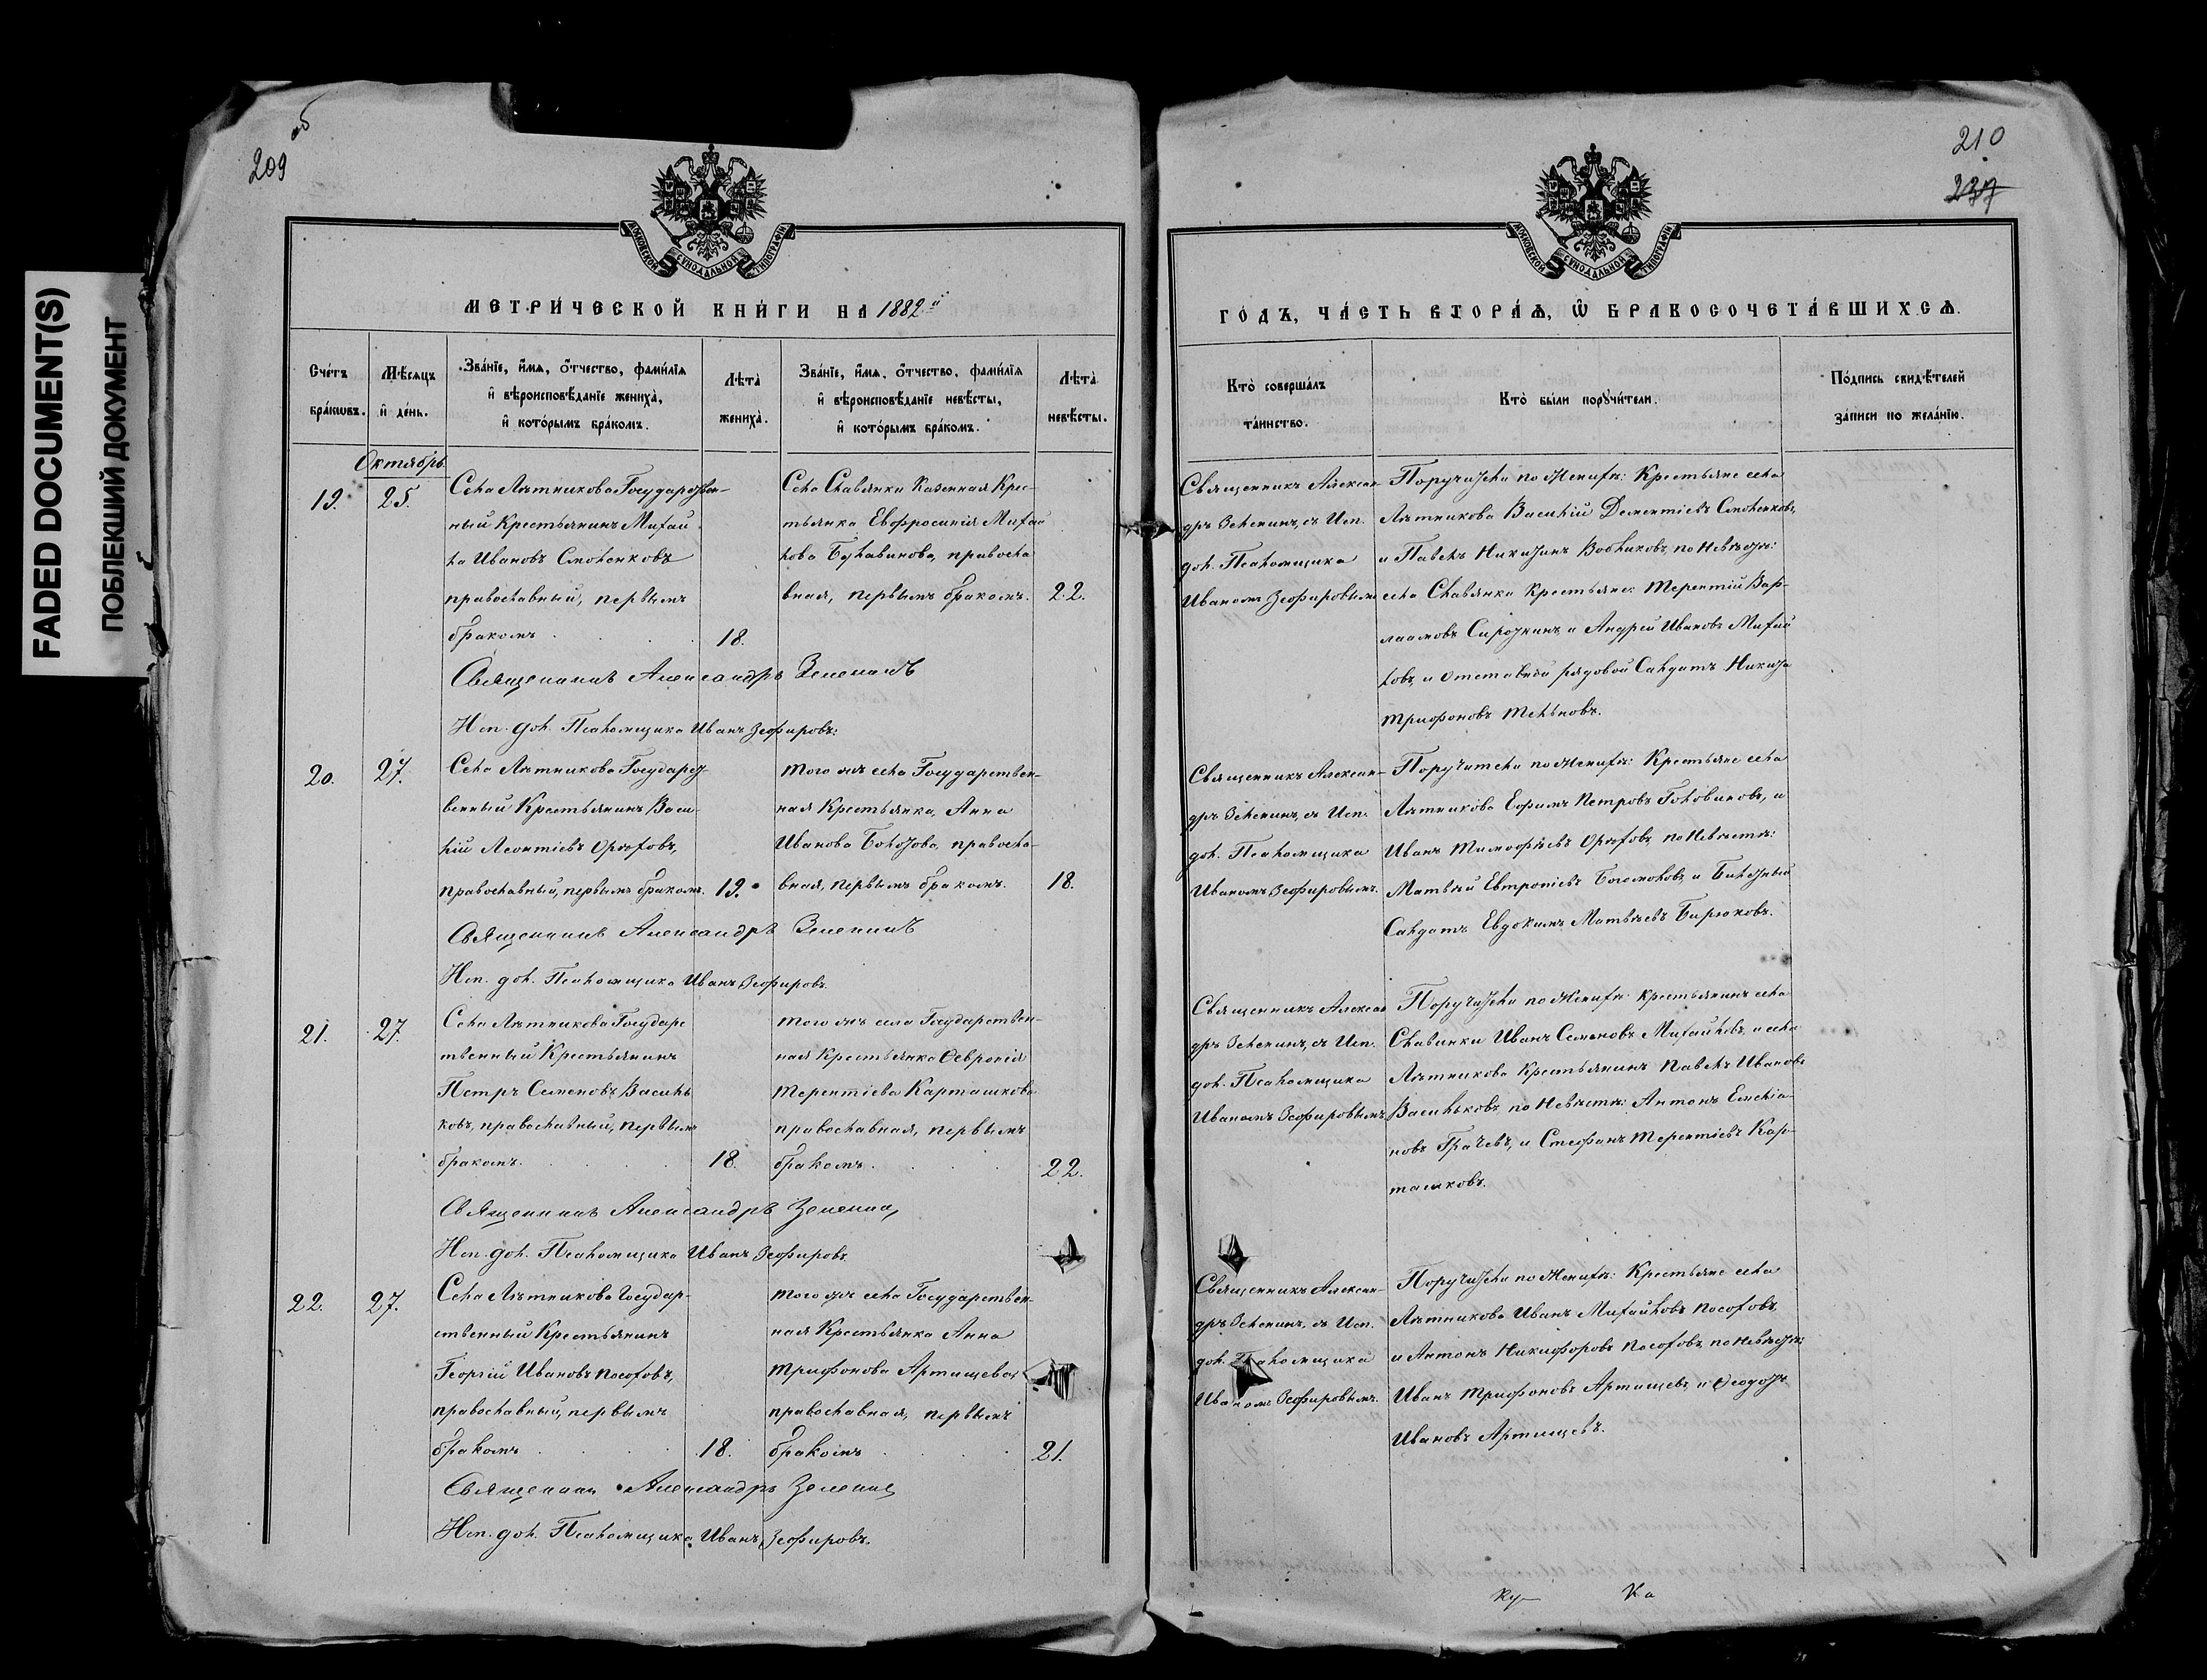 FADED DOCUMENT(S)
ПОБЛЕКШИЙ ДОКУМЕНТ
209 об
210
237
МОСКОВСКОЙ СѴНОДАЛЬНОЙ ТИПОГРАФІИ
МЕТРИ́ЧЕСКОЙ КНИ́ГИ НА 1882й
Сче́тъ бра́кωвъ.
Мѣ́сяцъ и҆ де́нь.
Зва́нїе, и҆́мѧ, о҆́тчество, фами́лїѧ
и҆ вѣроисповѣ́данїе жениха̀,
и҆ кото́рымъ бра́комъ.
Лѣта̀ жениха̀.
Зва́нїе, и҆́мѧ, о҆́тчество, фами́лїѧ
и҆ вѣроисповѣ́данїе невѣ́сты,
и҆ кото́рымъ бра́комъ.
Лѣта̀ невѣ́сты.
Октябрь
19.
25.
Села Лѣтникова Государствен-
ный Крестьянинъ Михай
ла Ивановъ Смоленковъ
православный, первымъ
бракомъ
18.
Села Славянки Казенная Крес-
тьянка Евфросинія Михай
лова Булавинова, правосла
вная, первымъ бракомъ.
22.
Священникъ Александръ Зеленинъ
Исп. дол. Псаломщика Иванъ Зефировъ:
20.
27.
Села Лѣтникова Государст-
венный Крестьянинъ Васи-
лій Леонтіевъ Орѣховъ,
православный, первымъ бракомъ.
19.
того жъ села Государствен-
ная Крестьянка, Анна
Иванова Болотова, правосла-
вная, первымъ бракомъ.
18.
Священникъ Александръ Зеленинъ
Исп. дол. Псаломщика Иванъ Зефировъ.
21.
27.
Села Лѣтникова Государс
твенный Крестьянинъ
Петръ Семеновъ Василь
ковъ, православный, первымъ
бракомъ.
18.
того жъ села Государствен-
ная Крестьянка Февронія
Терентіева Карташкова
православная, первымъ
бракомъ.
22.
Священникъ Александръ Зеленинъ
Исп. дол. Псаломщика Иванъ Зефировъ.
22.
27.
Села Лѣтникова Государ-
ственный Крестьянинъ
Георгій Ивановъ Посоховъ,
православный, первымъ
бракомъ
18.
того жъ села Государствен-
ная Крестьянка Анна
Трифонова Артищева,
православная, первымъ
бракомъ
21.
Священникъ Александръ Зеленинъ
Исп. дол. Псаломщика Иванъ Зефировъ.
МОСКОВСКОЙ СѴНОДАЛЬНОЙ ТИПОГРАФІИ
ГО́ДЪ, ЧА́СТЬ ВТОРА́Ѧ, Ѽ БРАКОСОЧЕТА́ВШИХСѦ.
Кто̀ соверша́лъ
та́инство.
Кто̀ бы́ли порꙋчи́тели.
По́дпись свидѣ́телей
за́писи по жела́нїю.
Священникъ Алексан-
дръ Зеленинъ, съ Исп.
дол. Псаломщика
Иваномъ Зефировымъ
Поручители по Женихѣ: Крестьяне села
Лѣтникова Василій Дементіевъ Смоленковъ,
и Павелъ Никитинъ Вобликовъ, по Невѣстѣ:
села Славянки Крестьяне Терентій Вар-
лаамовъ Сироткинъ, и Андрей Ивановъ Михай
ловъ, и Отставной рядовой Салдатъ Никита
Трифоновъ Тельновъ.
Священникъ Алексан-
дръ Зеленинъ, съ Исп.
дол. Псаломщика
Иваномъ Зефировымъ.
Поручители по Женихѣ: Крестьяне села
Лѣтникова Ефимъ Петровъ Головиновъ, и
Иванъ Тимофѣевъ Орѣховъ, по Невѣстѣ:
Матвѣй Евтропіевъ Богомоловъ, и Билетный
Салдатъ Евдокимъ Матвѣевъ Бирюковъ.
Священникъ Алексан
дръ Зеленинъ, съ Исп.
дол. Псаломщика
Иваномъ Зефировымъ,
Поручители по Женихѣ: Крестьянинъ села
Славянки Иванъ Семеновъ Михайловъ, и села
Лѣтникова Крестьянинъ Павелъ Ивановъ
Васильковъ, по Невѣстѣ: Антонъ Емелья-
новъ Грачевъ, и Стефанъ Терентіевъ Кар-
ташковъ.
Священникъ Алексан-
дръ Зеленинъ, съ Исп.
дол. Псаломщика
Иваномъ Зефировымъ.
Поручители по Женихѣ: Крестьяне села
Лѣтникова Иванъ Михайловъ Посоховъ,
и Антонъ Никифоровъ Посоховъ, по Невѣстѣ:
Иванъ Трифоновъ Артищевъ, и Федотъ
Ивановъ Артищевъ.